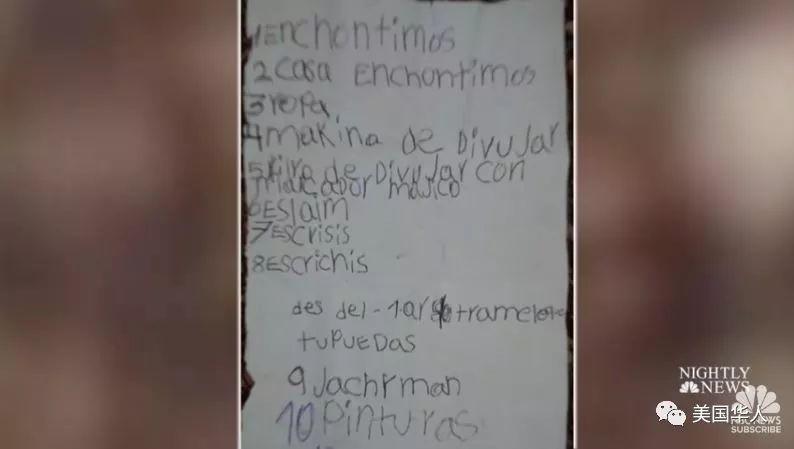 1Enchontimos
2 casa Enchontimos
3ropa,
4makina de Divujar
5 de Divujar con
marcador majico
6Eslaim
7Escrisis
8Escrichis
des del-1ar
tuPUEDAS
9 Jachrman
10 Pinturas
NIGHTLY
NEWS
美国华人
NBC NEWS
SUBSCRIBE